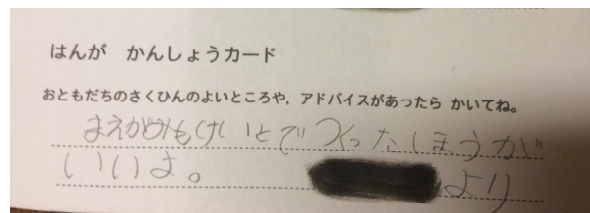 はんが　かんしょうカード
おともだちのさくひんのよいところや，アドバイスがあったら かいてね。
まえがみもけいとでつくったほうが
いいよ。　より